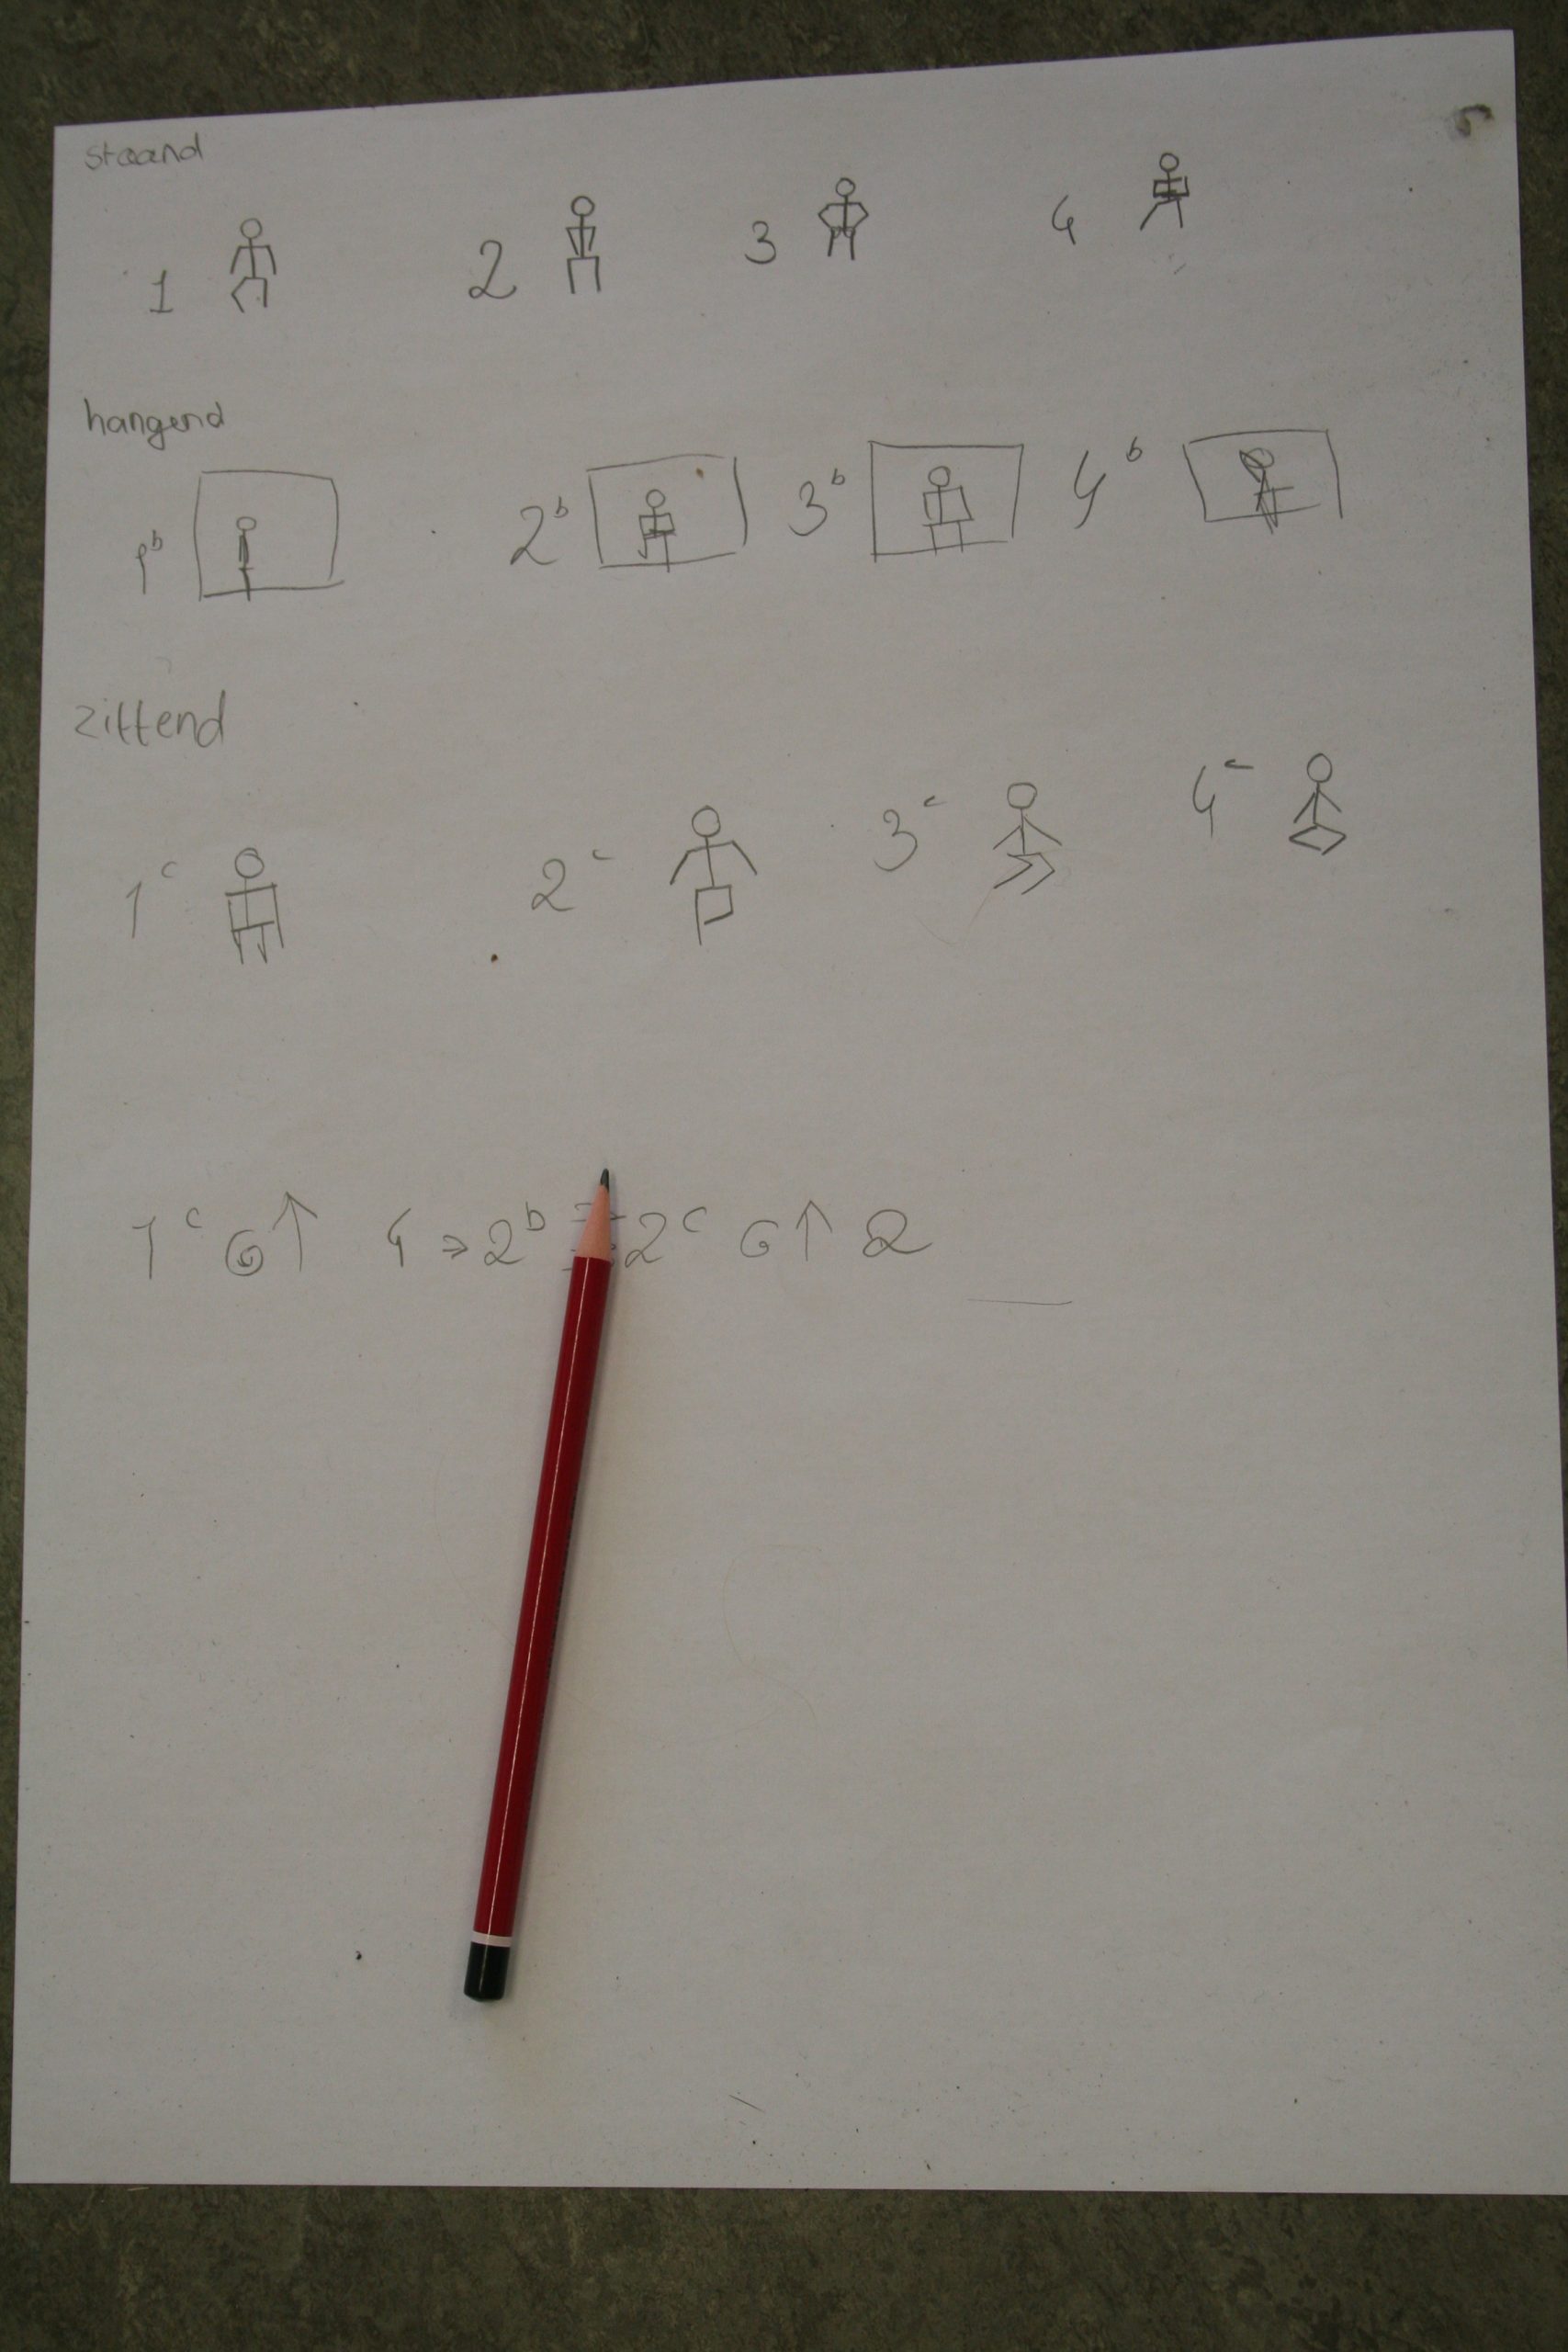 staand
1 2 3 4
hangend
1ᵇ 2ᵇ 3ᵇ 4ᵇ
zittend
1ᶜ 2ᶜ 3ᶜ 4ᶜ
1ᶜ ↑ 4 ⇒ 2ᵇ 2ᶜ ↑ 2